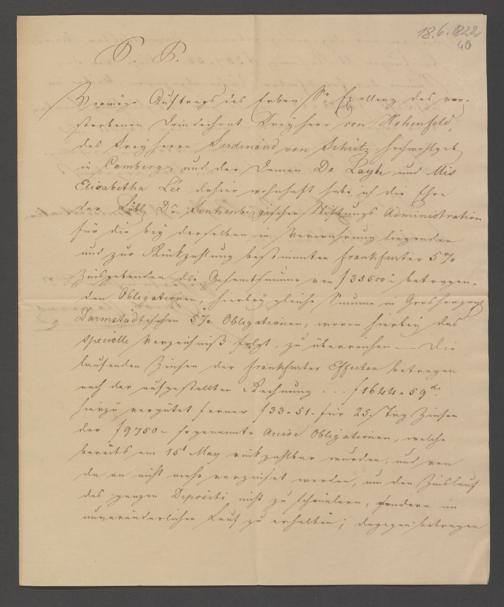 18.6.1822
40
P. P.
Auftrags des Erben Sr Exellenz des ver-
storbenen Domdechant Freyherr von Hohenfeld,
des Freyherrn Ferdinand von
in Camberg, und der Damen De Layh und Mis
Elisabetha Lee dahier wohnhaft habe ich die Ehre
der Löbl. Dr. Senkenbergischen Stiftungs Administration
für die bey derselben in Verwahrung liegenden
und zur Rückzahlung bestimmten Frankfurter 5%
die Gesamtsumme von f 33500 betragen-
den Obligationen, hierbey gleiche Summe in Grosherzogl
Darmstädtischen 5% Obligationen, worüber hierbey das
specielle Verzeichniß folgt, zu überreichen. Die
laufenden Zinsen der Frankfurter Effecten betragen
nach der aufgestellten Rechnung . . . f 1644.59
hierzu vergütet ferner f 33.51. für 25 Tag Zinsen
der f 9750 sogenannte Obligationen, welche
bereits am 15t May rückzahlbar wurden, und von
da an nicht mehr verzinset werden, um den Zinslauf
des ganzen Depositi nicht zu schmälern, sondern im
unveränderlichen Lauf zu erhalten; dagegen betragen